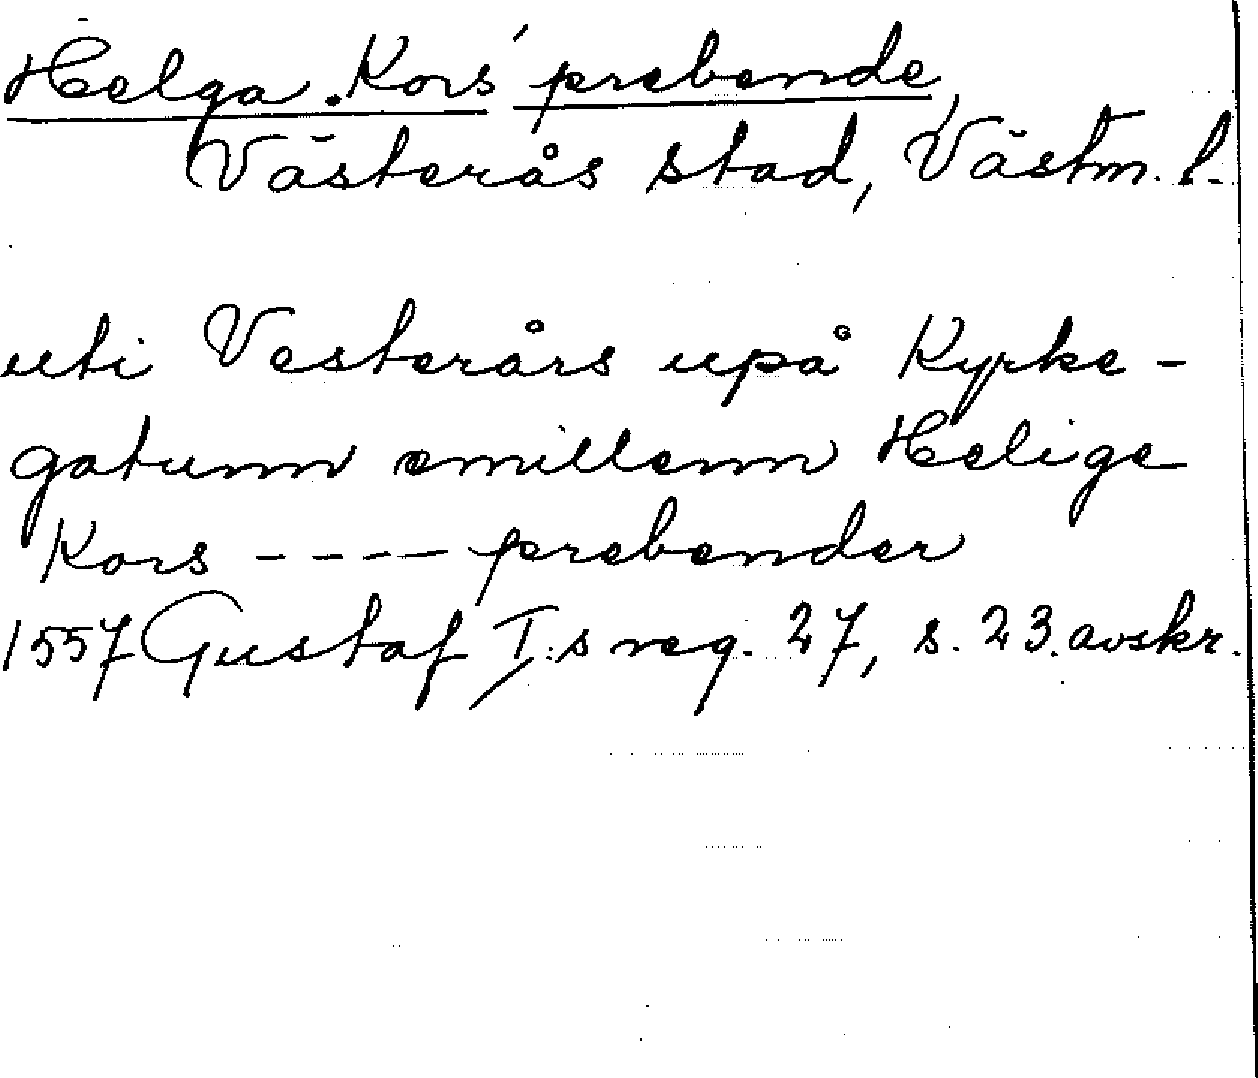 Helga Kors' prebende
Västerås stad, Västm. l.
uti Vesterårs upå Kyrke-
gatunn emillenn Helige
Kors ---- prebender
1557 Gustaf I:s reg. 27, s. 23. avskr.